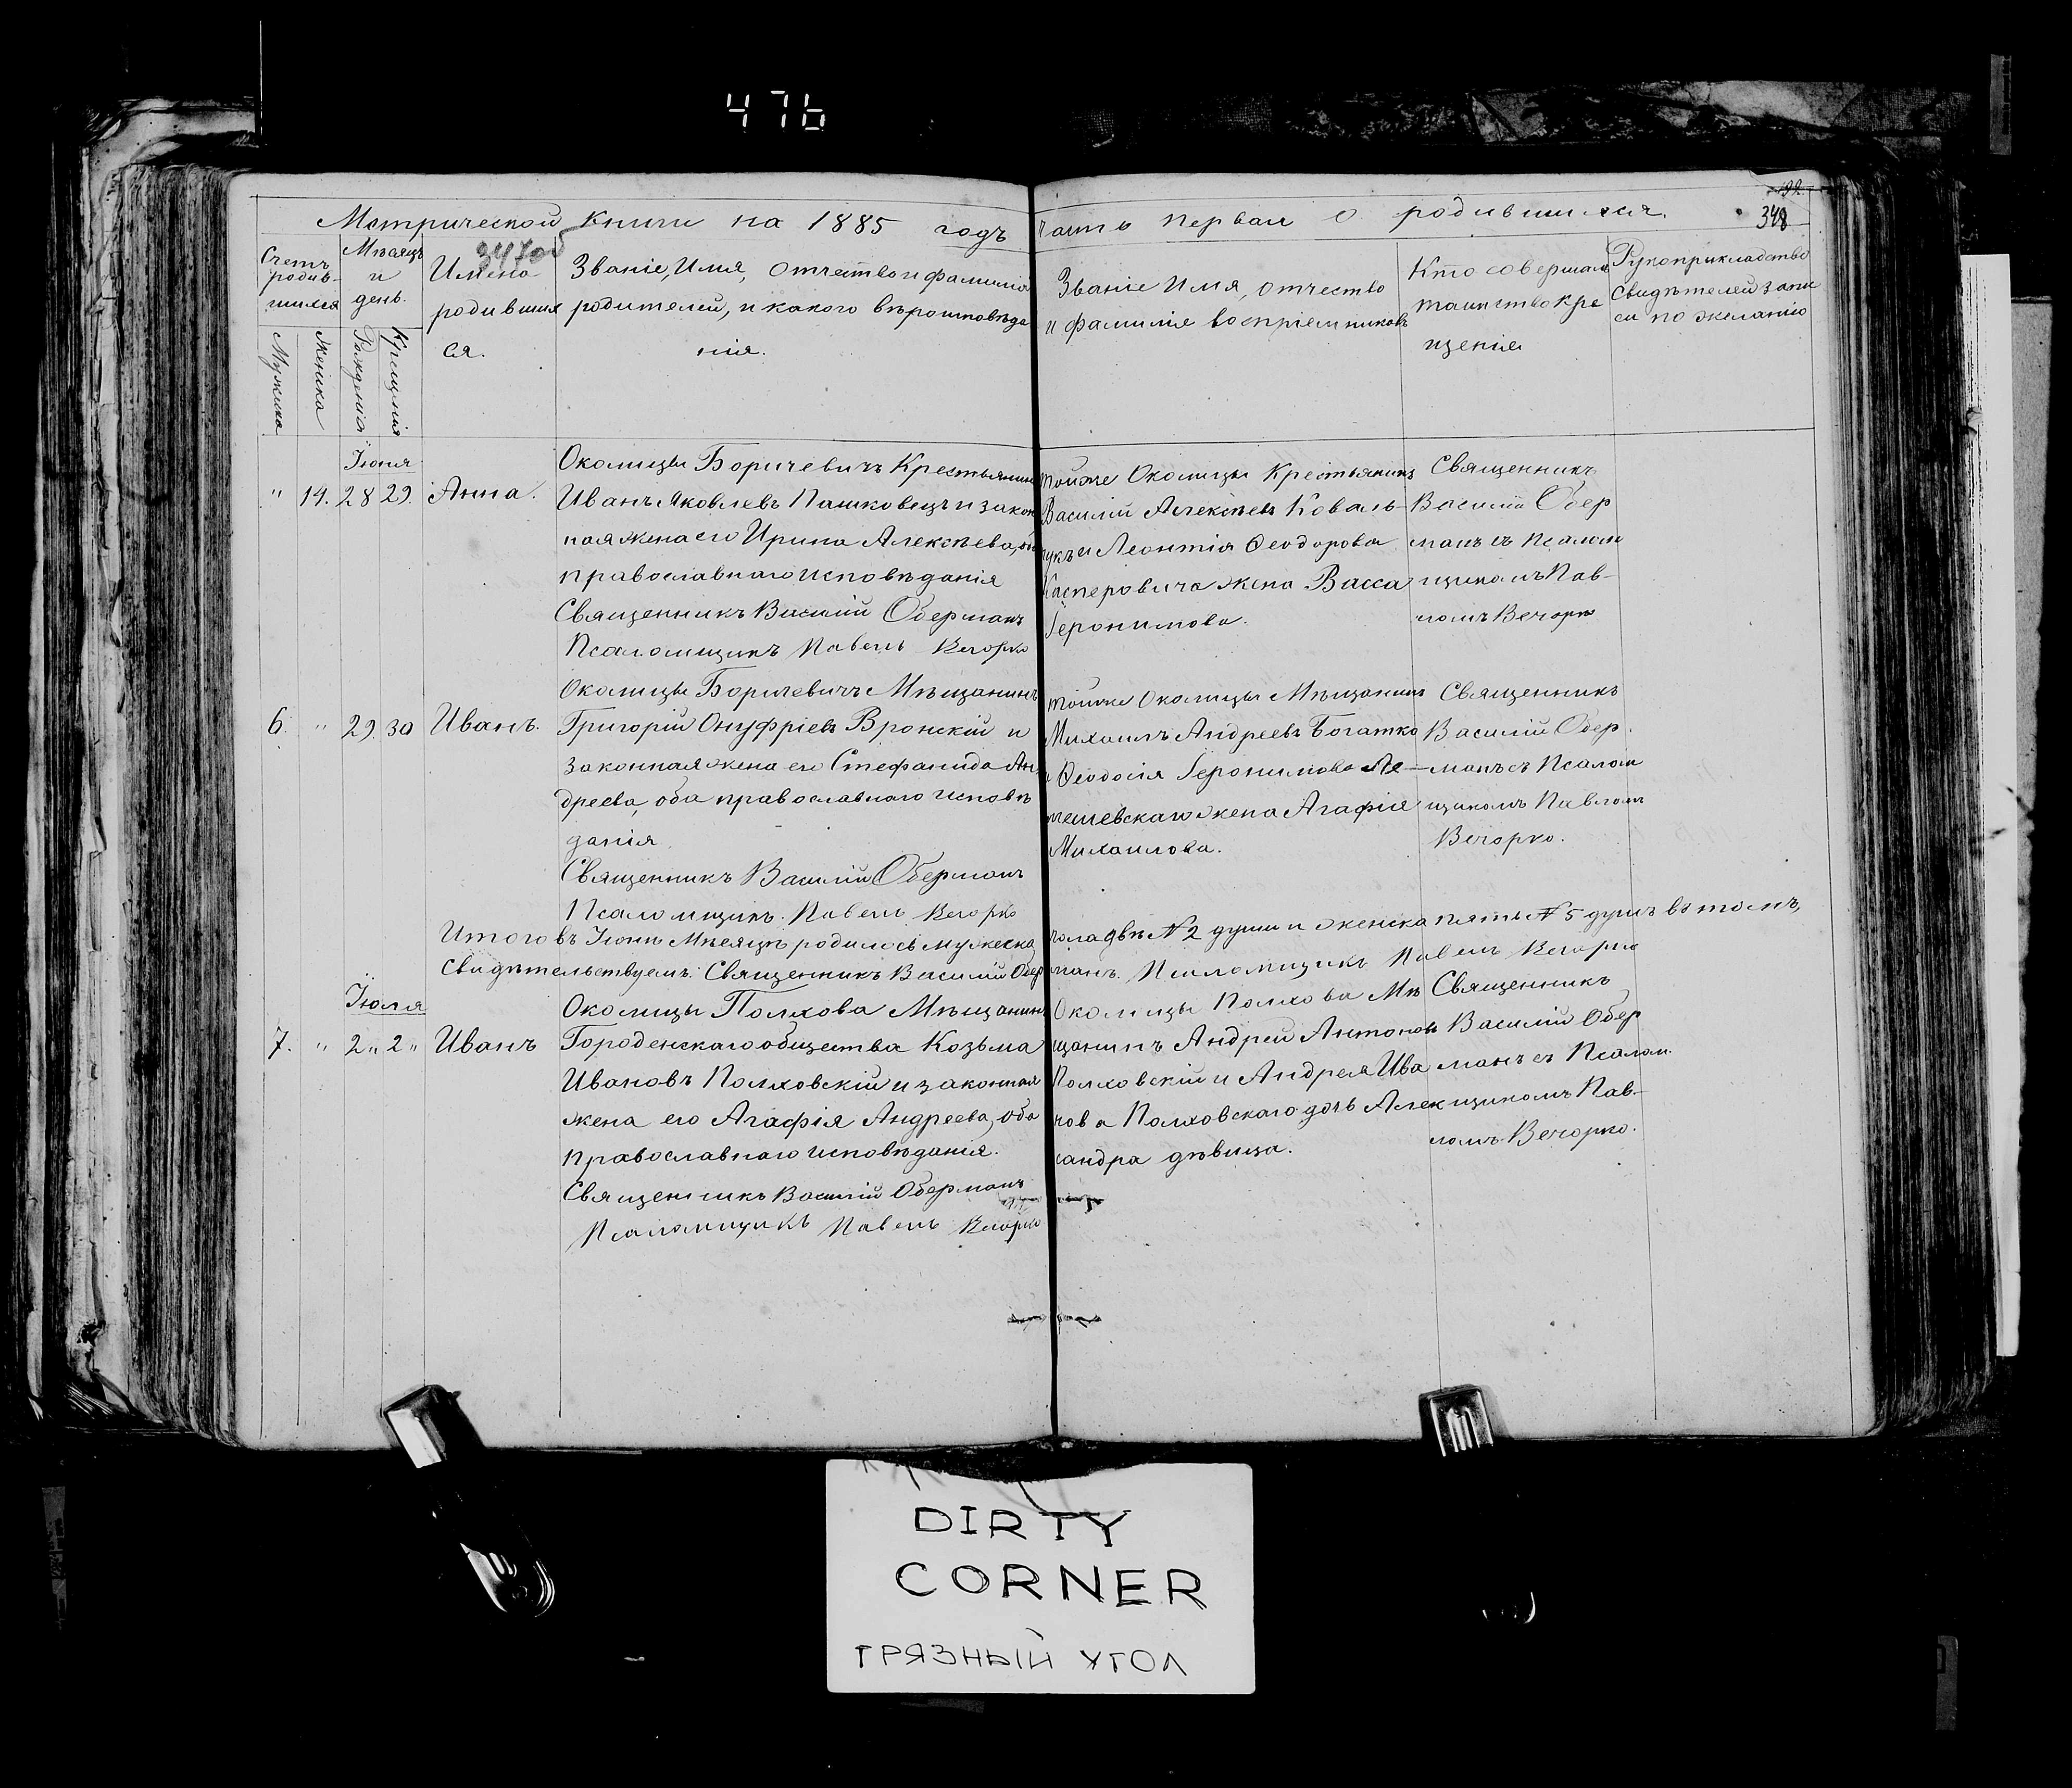 476
Метрической книги на 1885 годъ часть первая о родившихся.
192
348
Счетъ родив-шихся
Мужеска
Женска
Мѣсяцъ и день.
Рожденія
Крещенія
Имена
родивших
ся.
Званіе, Имя, отчество и фамилія
родителей, и какого вѣроисповѣда
нія.
Званіе Имя, отчество
и фамилія воспріемниковъ
Кто совершалъ
таинство кре
щенія
Рукоприкладство
свидѣтелей запи
си по желанію
Іюня
" 14. 28 29. Анна.
Околицы Боричевичъ Крестьянинъ
Иванъ Яковлевъ Пашковецъ и закон
ная жена его Ирина Алексѣева, оба
православнаго исповѣданія
Священникъ Василій Оберманъ
Псаломщикъ Павелъ Вечорко
тойже Околицы Крестьянинъ
Василій Алексѣевъ Коваль-
чукъ и Леонтія Ѳеодорова
Касперовича жена Васса
Іеронимова.
Священникъ
Василій Обер
манъ съ Псалом
щикомъ Пав-
ломъ Вечорко
6. " 29. 30 Иванъ.
Околицы Боричевичъ Мѣщанинъ
Григорій Онуфріевъ Вронскій и
законная жена его Стефанида Ан
дреева, оба православнаго исповѣ
данія
Священникъ Василій Оберманъ
Псаломщикъ Павелъ Вечорко
тойже Околицы Мѣщанинъ
Михаилъ Андреевъ Богатко
и Ѳеодосія Іеронимова Ле-
мешевскаго жена Агафія
Михаилова.
Священникъ
Василій Обер.
манъ съ Псалом
щикомъ Павломъ
Вечорко.
Итого въ Іюнѣ Мѣсяцѣ родилось мужеска пола двѣ № 2 души и женска пять № 5 душъ въ томъ,
Свидѣтельствуемъ: Священникъ Василій Оберманъ. Псаломщикъ Павелъ Вечорко
Іюля
7. " 2 " 2 " Иванъ
Околицы Полхова Мѣщанинъ
Городенскаго общества Козьма
Ивановъ Полховскій и законная
жена его Агафія Андреева, оба
православнаго исповѣданія.
Священникъ Василій Оберманъ
Псаломщикъ Павелъ Вечорко
Околицы Полхова Мѣ
щанинъ Андрей Антоновъ
Полховскій и Андрея Ива
нова Полховскаго дочь Алек
сандра дѣвица.
Священникъ
Василій Обер
манъ съ Псалом.
щикомъ Пав-
ломъ Вечорко.
DIRTY
CORNER
ГРЯЗНЫЙ УГОЛ